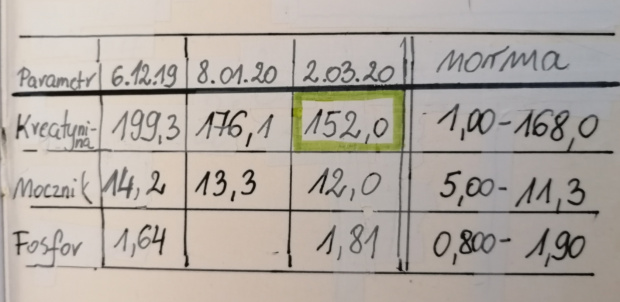 Parametr 6.12.19 8.01.20 2.03.20 norma
Kreatyni-na 199,3 176,1 152,0 1,00-168,0
Mocznik 14,2 13,3 12,0 5,00-11,3
Fosfor 1,64 1,81 0,800-1,90